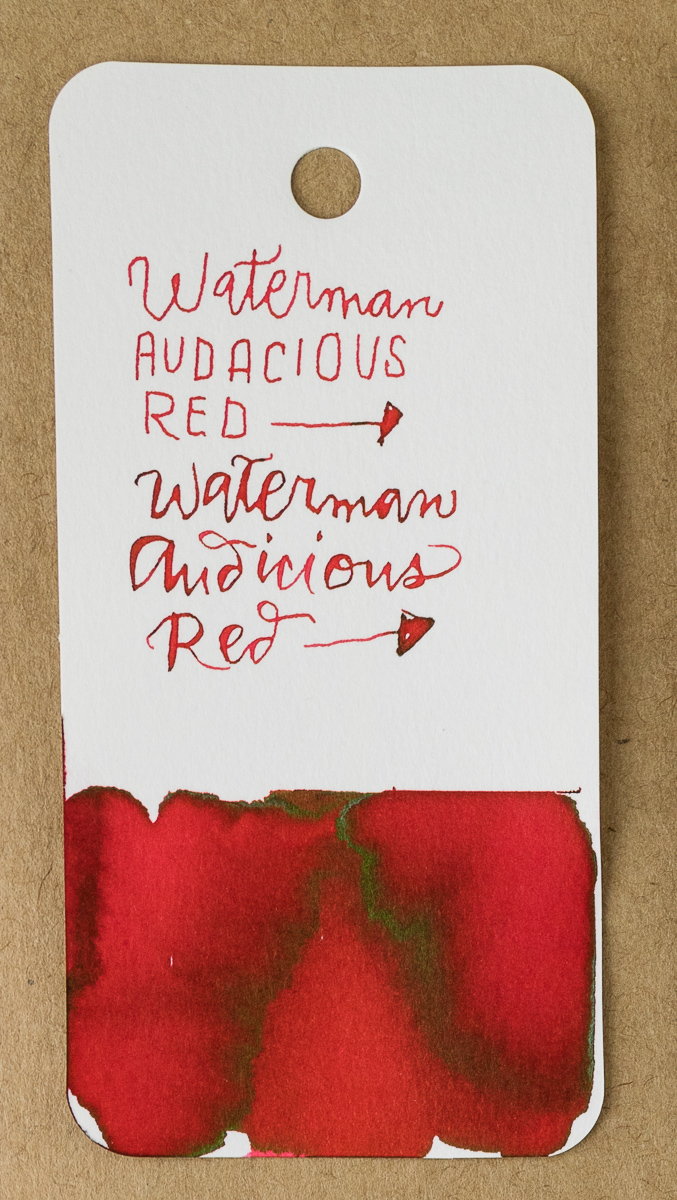 Waterman
AUDACIOUS
RED
Waterman
Audicious
Red